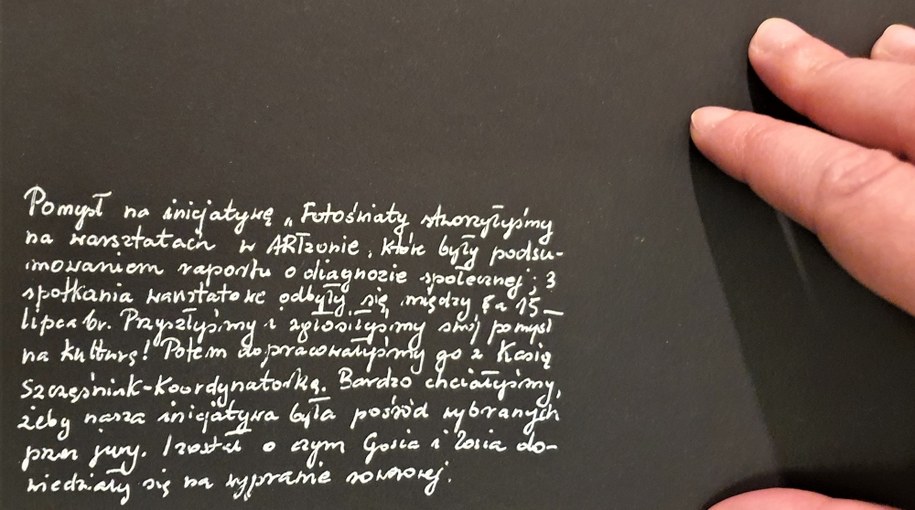 Pomysł na inicjatywę „Fotoświaty stworzyłyśmy
na warsztatach w ARTzonie, które były podsu-
mowaniem raportu o diagnozie społecznej; 3
spotkania warsztatowe odbyły się między 8 a 15
lipca br. Przyszłyśmy i zgłosiłyśmy swój pomysł
na kulturę! Potem dopracowałyśmy go z Kasią
Szczęśniak-Koordynatorką. Bardzo chciałyśmy,
żeby nasza inicjatywa była pośród wybranych
przez jury. I został o czym Gosia i Zosia do-
wiedziały się na wyprawie rowerowej.